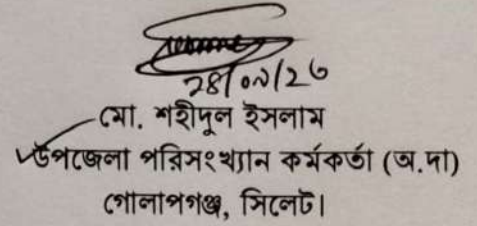 মো. শহীদুল ইসলাম
উপজেলা পরিসংখ্যান কর্মকর্তা (অ.দা)
গোলাপগঞ্জ, সিলেট।